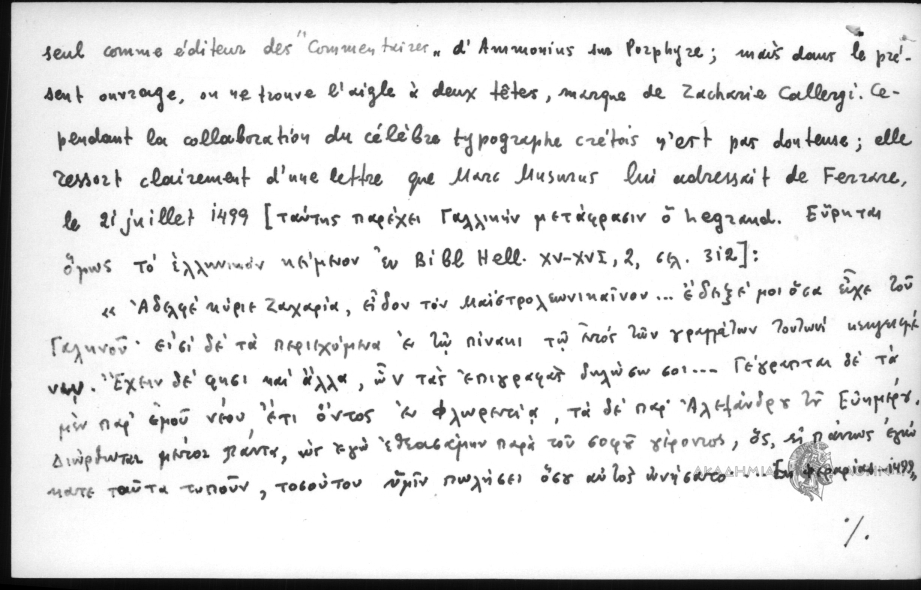 seul comme éditeur des "Commentaires„ d'Ammonius sur Porphyre; mais dans le pré-
sent ouvrage, on ne trouve l'aigle à deux têtes, marque de Zacharie Callergi. Ce-
pendant la collaboration du célèbre typographe crétois n'est pas douteuse; elle
ressort clairement d'une lettre que Marc Musurus lui adressait de Ferrare,
le 21 juillet 1499 [ταύτης παρέχει Γαλλικήν μετάφρασιν ὁ Legrand. Εὕρηται
ὅμως τό ἑλληνικόν κείμενον ἐν Bibl Hell. XV-XVI, 2, σελ. 312]:
« Ἀδελφέ κύριε Ζαχαρία, εἶδον τόν μαΐστρολεωνικαῖνον... ἔδειξέ μοι ὅσα εἶχε τοῦ
Γαληνοῦ· εἰσί δέ τά περιεχόμενα ἐν τῷ πίνακι τῷ ἐντός τῶν γραμμάτων τουτωνί κεκλεισμέ
νῳ. Ἔχειν δέ φησι καί ἄλλα, ὧν τάς ἐπιγραφάς δηλώσω σοι... Γέγραπται δέ τά
μέν παρ' ἐμοῦ νέου ἔτι ὄντος ἐν Φλωρεντίᾳ, τά δέ παρ' Ἀλεξάνδρου τοῦ Εὐημέρου.
Διώρθωται μέντοι πάντα, ὡς ἐγώ ἐθεασάμην παρά τοῦ σοφοῦ γέροντος, ὅς, εἰ πάντως ἐγνώ
κατε ταῦτα τυποῦν, τοσούτου ὑμῖν πωλήσει ὅσου αὐτός ὠνήσατο... Ἐν Φεραρίας 1499,
./.
ΑΚΑΔΗΜΙΑ